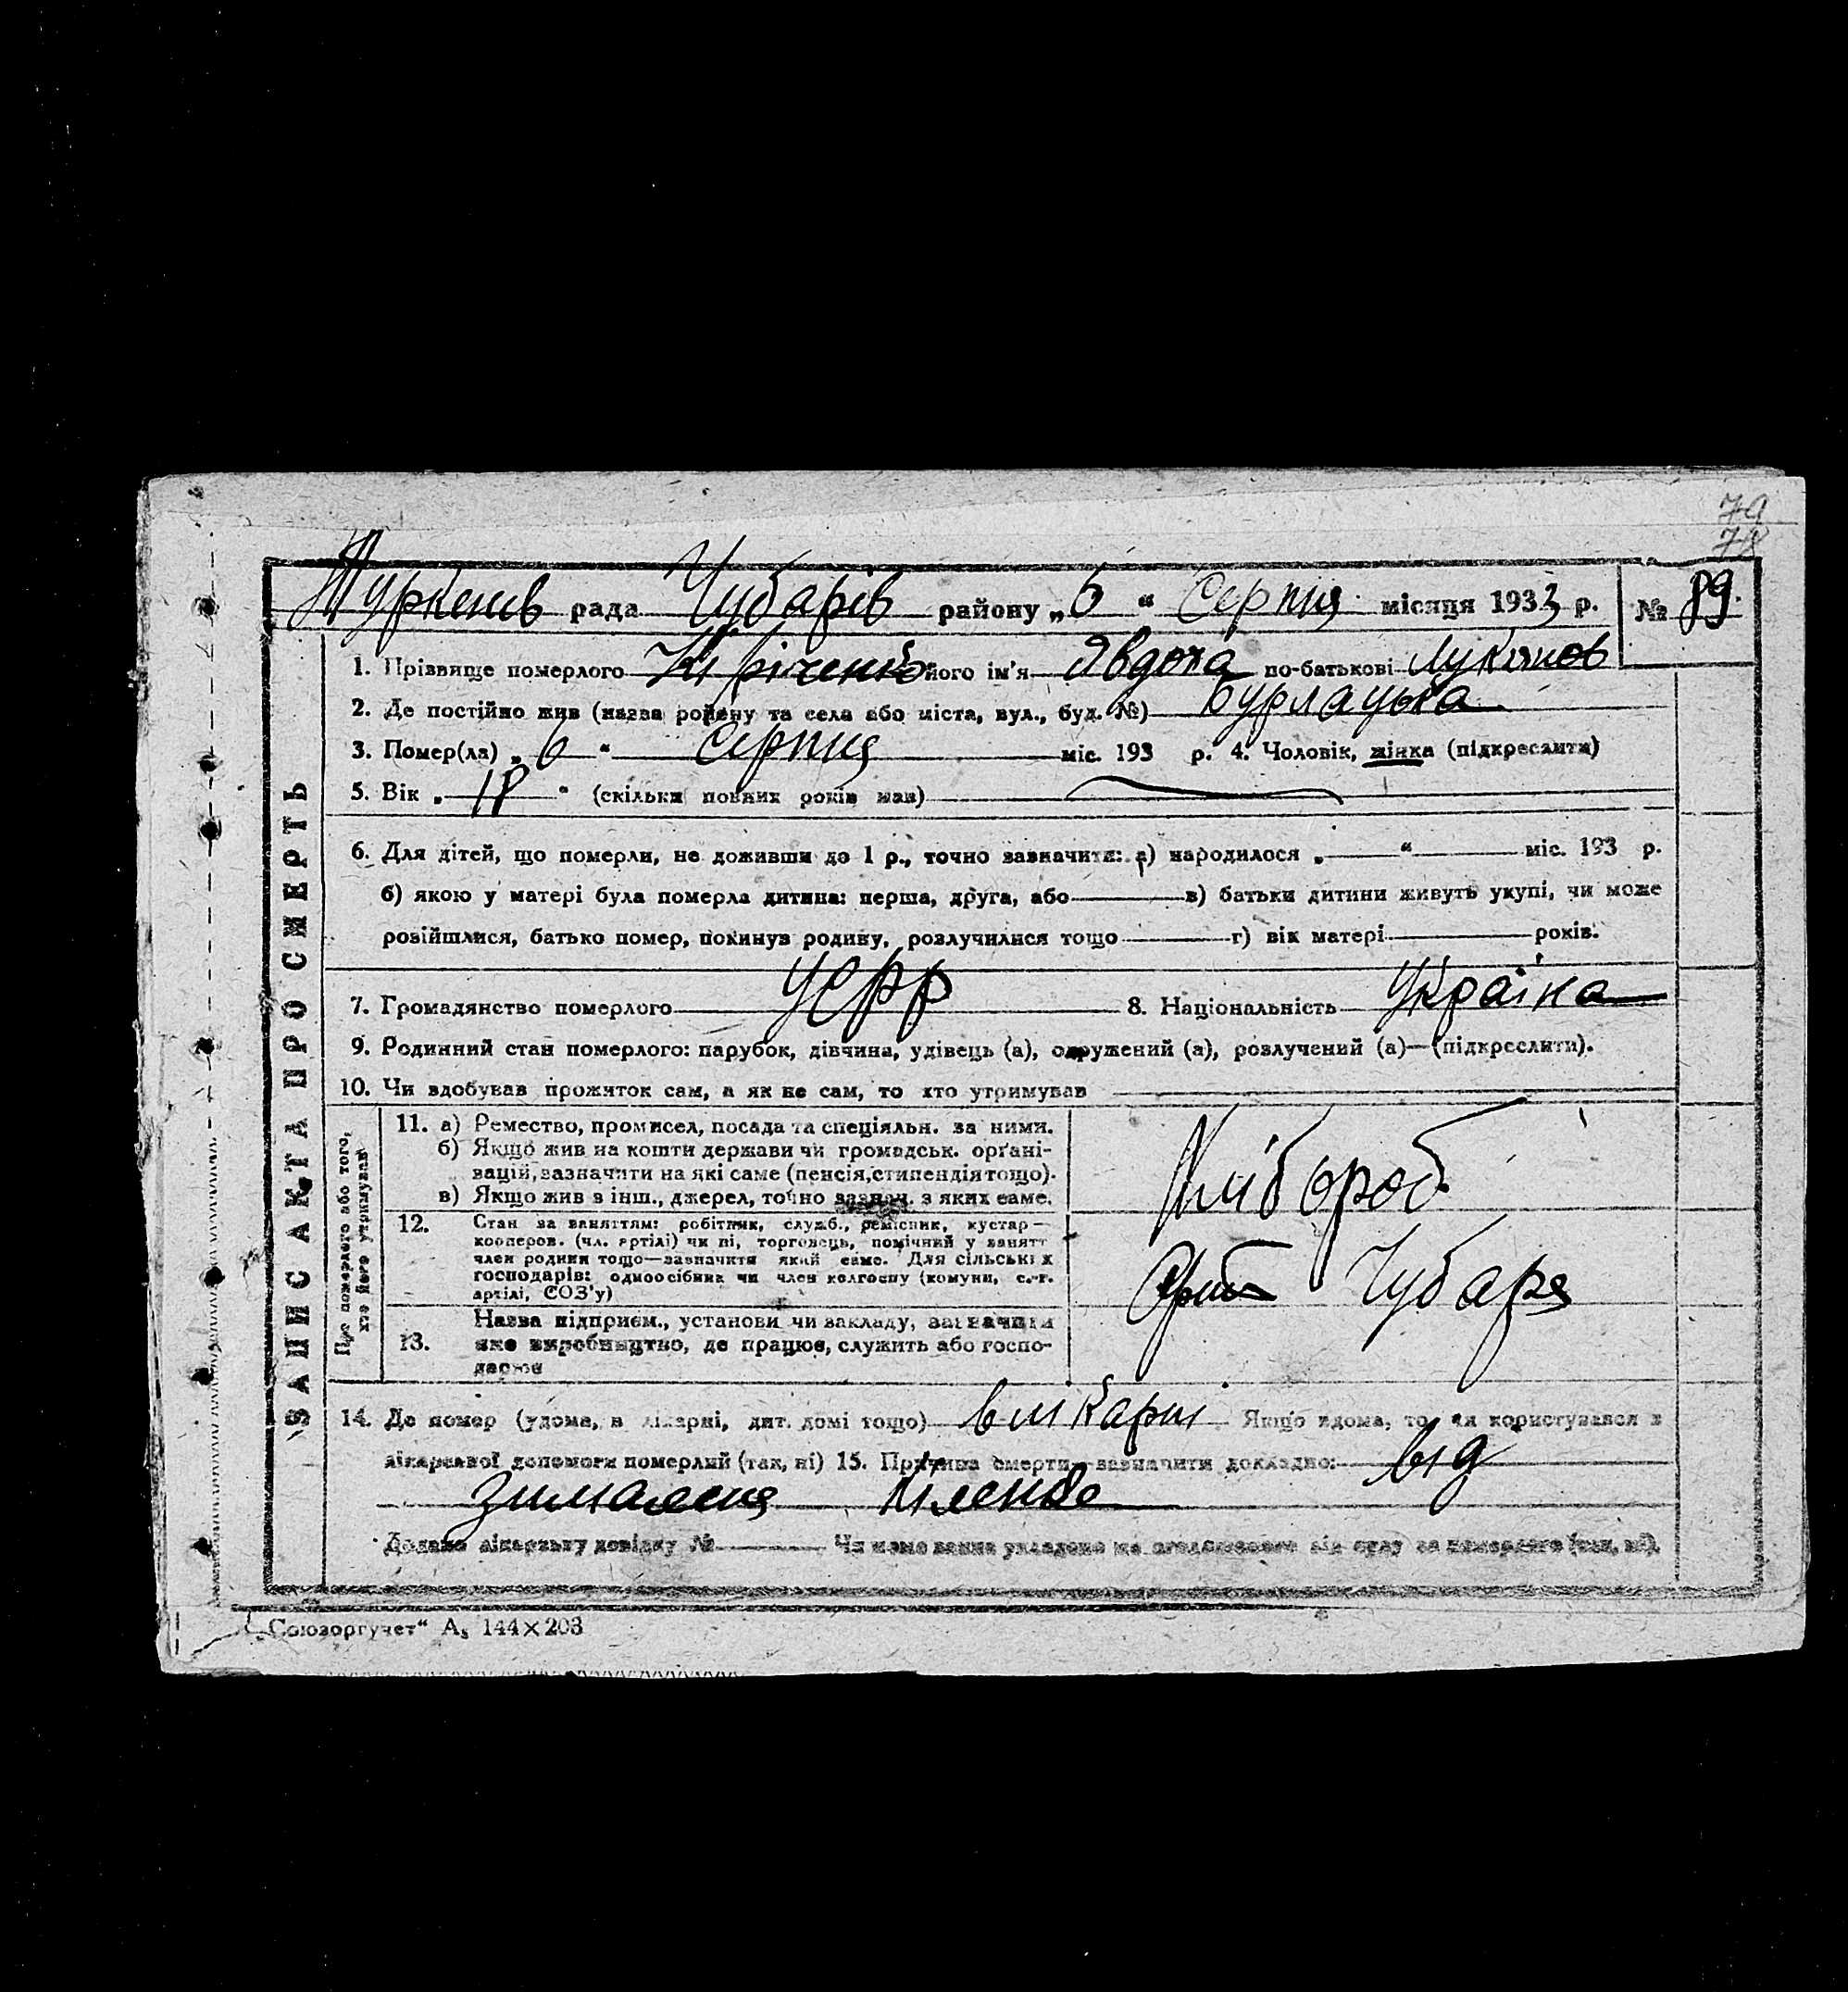 79
78
Туркенів рада Чубарів району „6“ Серпня місяця 1933 р. № 89.
ЗАПИС АКТА ПРО СМЕРТЬ
1. Прізвище померлого його ім'я Явдоха по-батькові Лукянов
2. Де постійно жив (назва району та села або міста, вул., буд. №) Бурлацька
3. Помер(ла) „6“ Серпня міс. 193 р. 4. Чоловік, жінка (підкреслити)
5. Вік „18“ (скільки повних років мав)
6. Для дітей, що померли, не доживши до 1 р., точно зазначити: а) народилося „ “ міс. 193 р.
б) якою у матері була померла дитина: перша, друга, або в) батьки дитини живуть укупі, чи може
розійшлися, батько помер, покинув родину, розлучилися тощо г) вік матері років.
7. Громадянство померлого УСРР 8. Національність Україна
9. Родинний стан померлого: парубок, дівчина, удівець (а), одружений (а), розлучений (а)—(підкреслити).
10. Чи здобував прожиток сам, а як не сам, то хто утримував
Про померлого або того,
хто його утримував
11. а) Ремество, промисел, посада та спеціяльн. за ними.
б) Якщо жив на кошти держави чи громадськ. орґані-
зацій, зазначити на які саме (пенсія, стипендія тощо).
в) Якщо жив з інш., джерел, точно зазнач. з яких саме.
Хлібороб
12. Стан за заняттям: робітник, служб., ремісник, кустар—
кооперов. (чл. артілі) чи ні, торговець, помічний у занятт
член родини тощо—зазначити який саме. Для сільських
господарів: одноосібник чи член колгоспу (комуни, с.-г.
артілі, СОЗ'у)
Чубаря
13. Назва підприєм., установи чи закладу, зазначити
яке виробництво, де працює, служить або госпо-
дарює
14. Де помер (удома, в лікарні, дит. домі тощо) в лікарні Якщо вдома, то чи користувався з
лікарської допомоги померлий (так, ні) 15. Причина смерти зазначити докладно: від
Додано лікарську довідку № Чи
„Союзоргучет“ А5 144×203